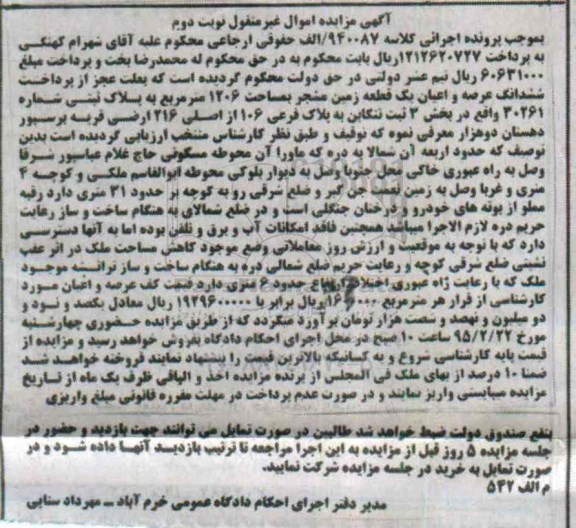 آگهی مزایده اموال غیرمنقول نوبت دوم
بموجب پرونده اجرائی کلاسه ۹۴۰۰۸۷/الف حقوقی ارجاعی محکوم علیه آقای شهرام کهنکی
به پرداخت ۱۲۱۲۶۲۰۷۲۷ریال بابت محکوم به در حق محکوم له محمدرضا بخت و پرداخت مبلغ
۶۰۶۳۱۰۰۰ ریال نیم عشر دولتی در حق دولت محکوم گردیده است که بعلت عجز از پرداخت
ششدانگ عرصه و اعیان یک قطعه زمین مشجر بمساحت ۱۲۰۶ مترمربع به پلاک ثبتی شماره
۳۰۲۶۱ واقع در بخش ۳ ثبت تنکابن به پلاک فرعی ۱۰۶ از اصلی ۲۱۶ اراضی قریه پرسپور
دهستان دوهزار معرفی نموه که توقیف و طبق نظر کارشناس منتخب ارزیابی گردیده است بدین
توصیف که حدود اربعه آن شمالا به دره که ماورا آن محوطه مسکونی حاج غلام عباسپور شرقا
وصل به راه عبوری خاکی محل جنوبا وصل به دیوار بلوکی محوطه ابوالقاسم ملکی و کوچه ۴
متری و غربا وصل به زمین نعمت جن گیر و ضلع شرقی رو به کوچه بر حدود ۳۱ متری دارد رقبه
مملو از بوته های خودرو و درختان جنگلی است و در ضلع شمالای به هنگام ساخت و ساز رعایت
حریم دره لازم الاجرا میباشد همچنین فاقد امکانات آب و برق و تلفن بوده اما به آنها دسترسی
دارد که با توجه به موقعیت و ارزش روز معاملاتی وضع موجود کاهش مساحت ملک در اثر عقب
نشینی ضلع شرقی کوچه و رعایت حریم ضلع شمالی دره به هنگام ساخت و ساز ترانسته موجود
ملک که با رعایت راه عبوری اختلاف ارتفاع حدود ۶ متری دارد قیمت کف عرصه و اعیان مورد
کارشناسی از قرار هر مترمربع ریال برابر با ۱۹۲۹۶۰۰۰۰۰ ریال معادل یکصد و نود و
دو میلیون و نهصد و شصت هزار تومان برآورد میگردد که از طریق مزایده حضوری چهارشنبه
مورخ ۹۵/۲/۲۲ ساعت ۱۰ صبح در محل اجرای احکام دادگاه بفروش خواهد رسید و مزایده از
قیمت پایه کارشناسی شروع و به کسانیکه بالاترین قیمت را پیشنهاد نمایند فروخته خواهد شد
ضمنا ۱۰ درصد از بهای ملک فی المجلس از برنده مزایده اخذ و الباقی ظرف یک ماه از تاریخ
مزایده میبایستی واریز نمایند و در صورت عدم پرداخت در مهلت مقرره قانونی مبلغ واریزی
بنفع صندوق دولت ضبط خواهد شد طالبین در صورت تمایل می توانند جهت بازدید و حضور در
جلسه مزایده ۵ روز قبل از مزایده به این اجرا مراجعه تا ترتیب بازدید آنها داده شود و در
صورت تمایل به خرید در جلسه مزایده شرکت نمایید.
م الف ۵۴۲
مدیر دفتر اجرای احکام دادگاه عمومی خرم آباد ــ مهرداد سنایی